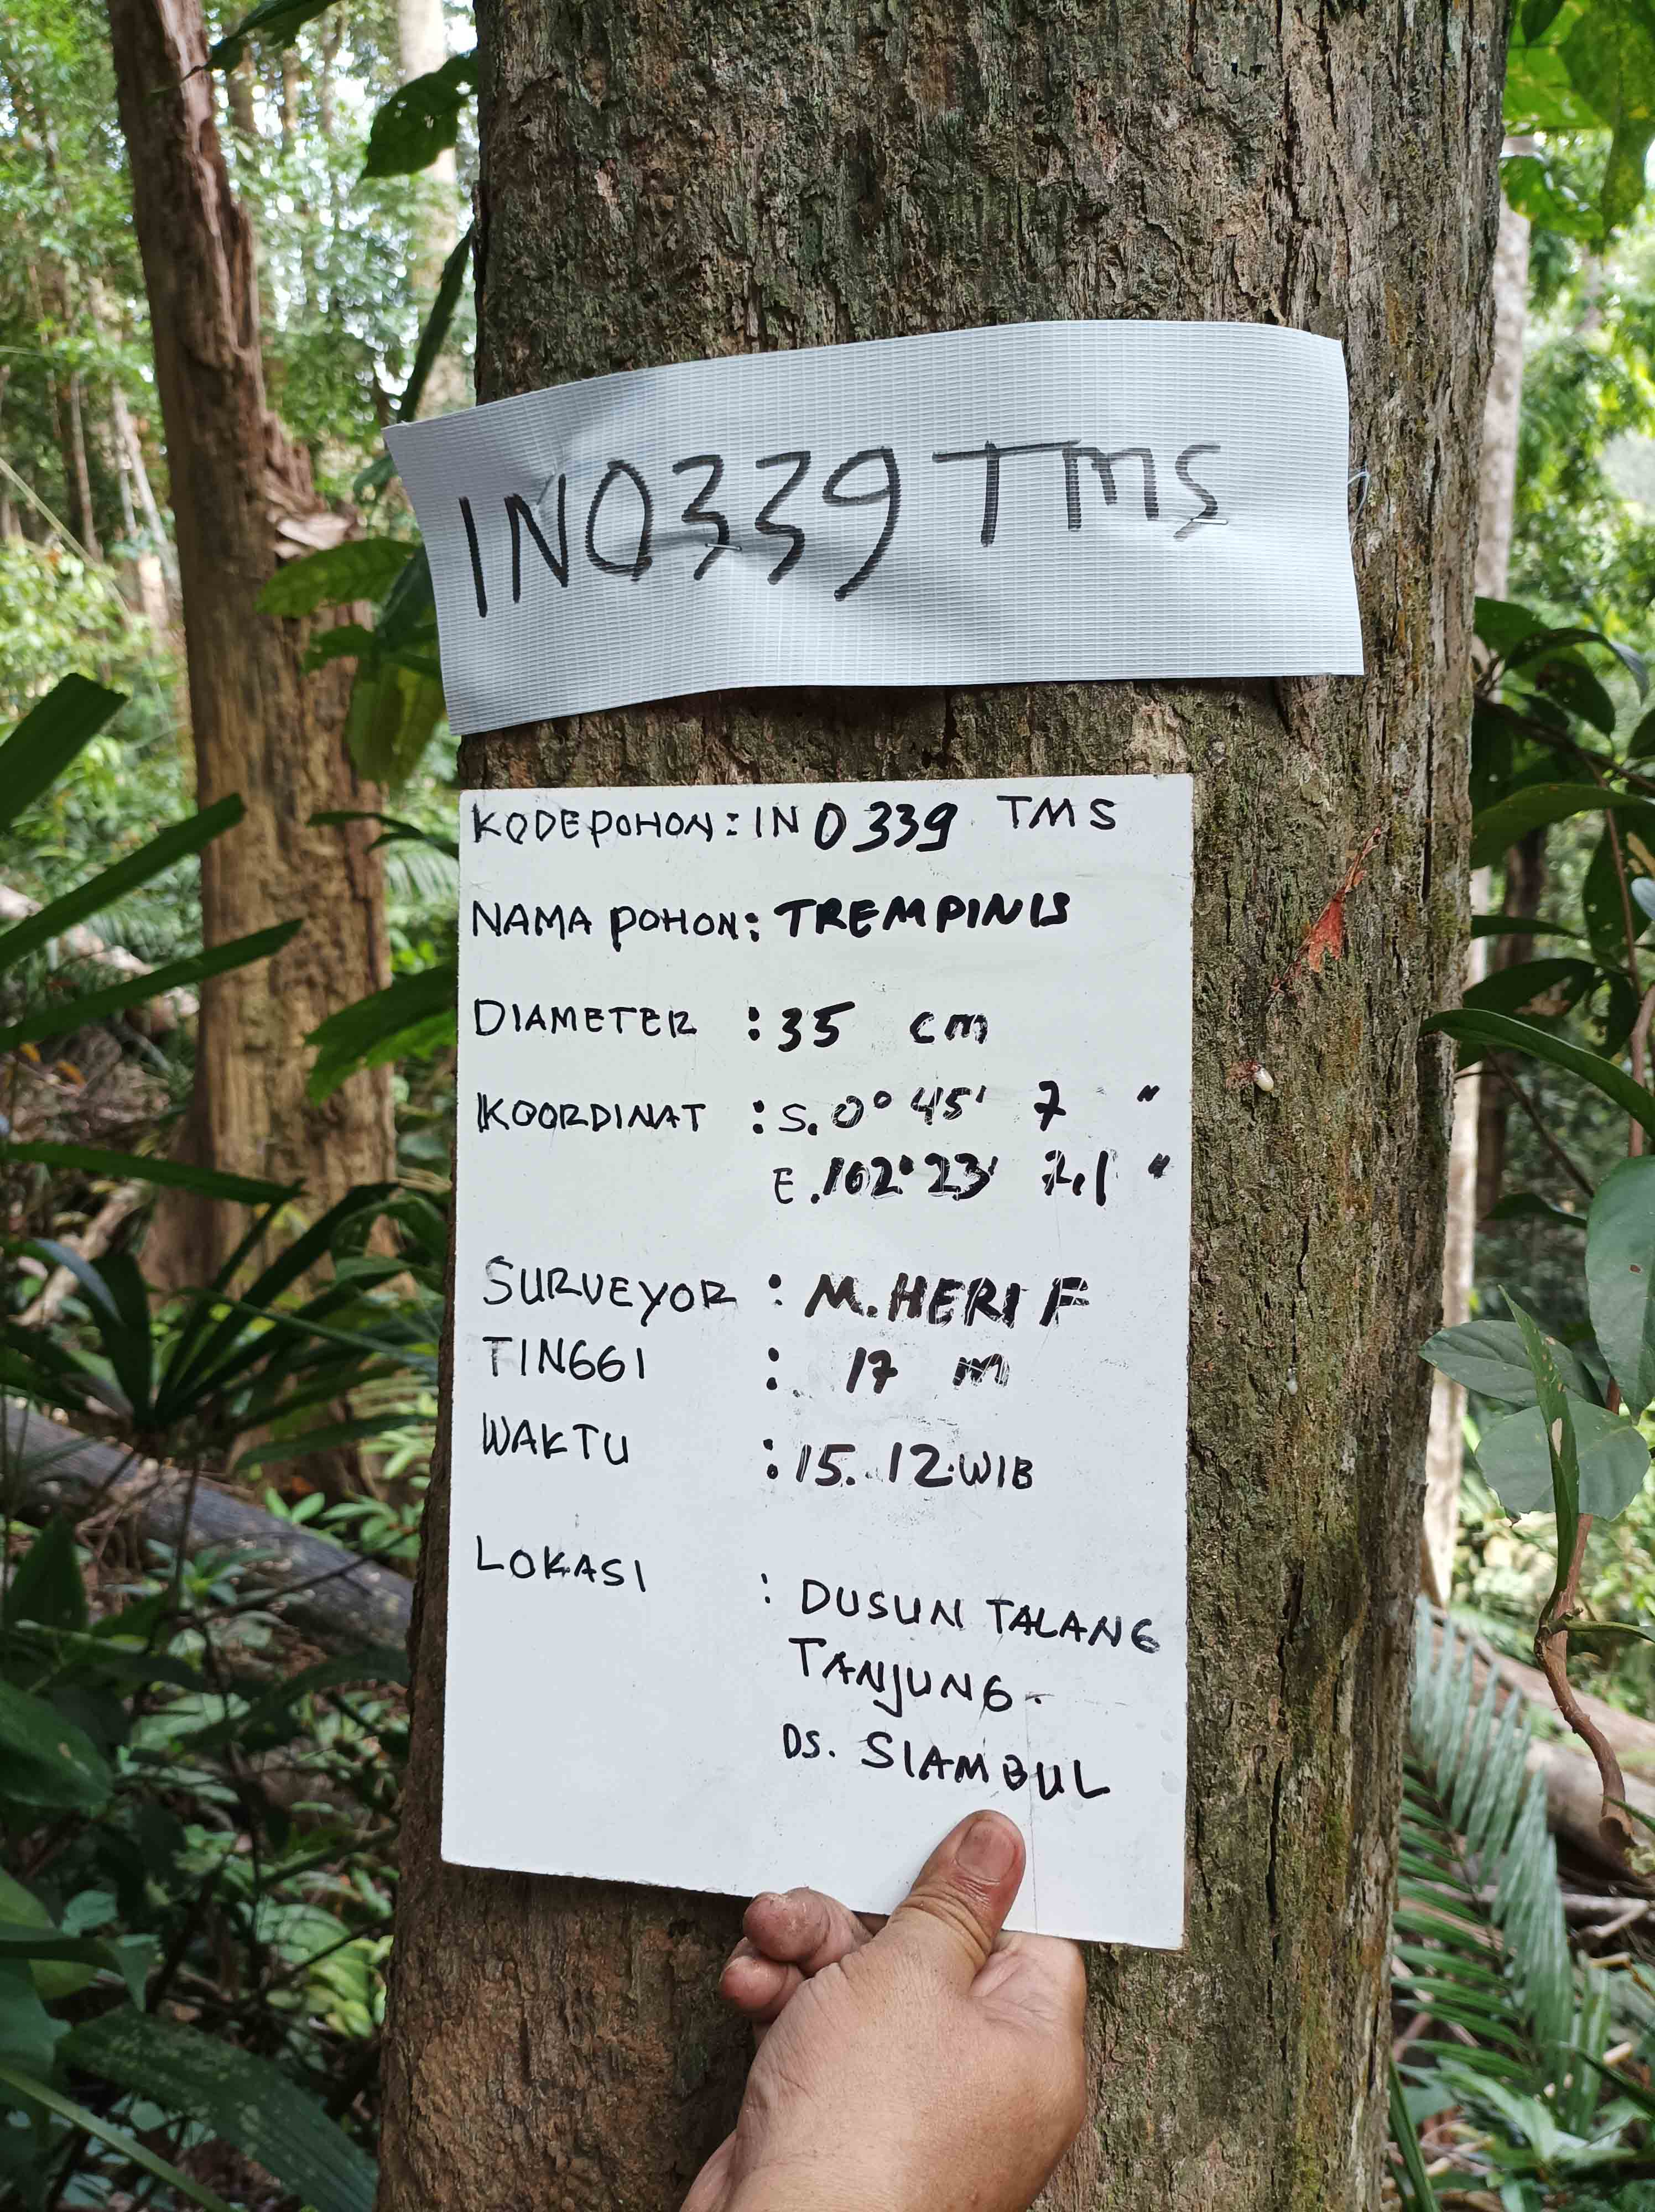 IN0339 TMS
KODE POHON : IN 0339 TMS
NAMA POHON : TREMPINIS
DIAMETER : 35 cm
KOORDINAT : S. 0° 45' 7 "
E. 102° 23' 7,1 "
SURVEYOR : M. HERI F
TINGGI : 17 m
WAKTU : 15. 12. WIB
LOKASI : DUSUN TALANG
TANJUNG -
DS. SIAMBUL